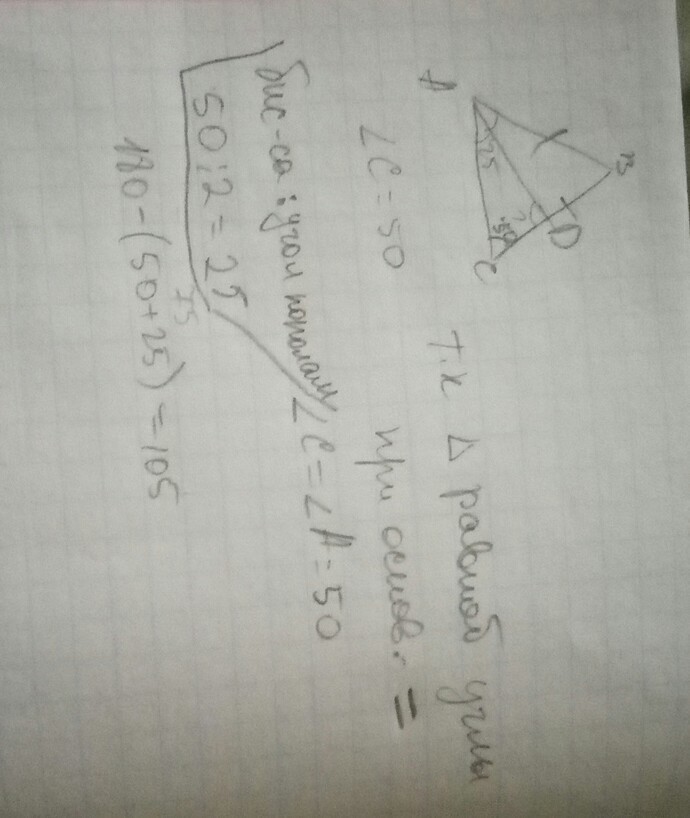 A
B
25
?
50
D
C
∠C = 50
т.к Δ равноб углы
при основ. =
∠C = ∠A = 50
бис-са : угол пополам
50 : 2 = 25
75
180 - (50 + 25) = 105